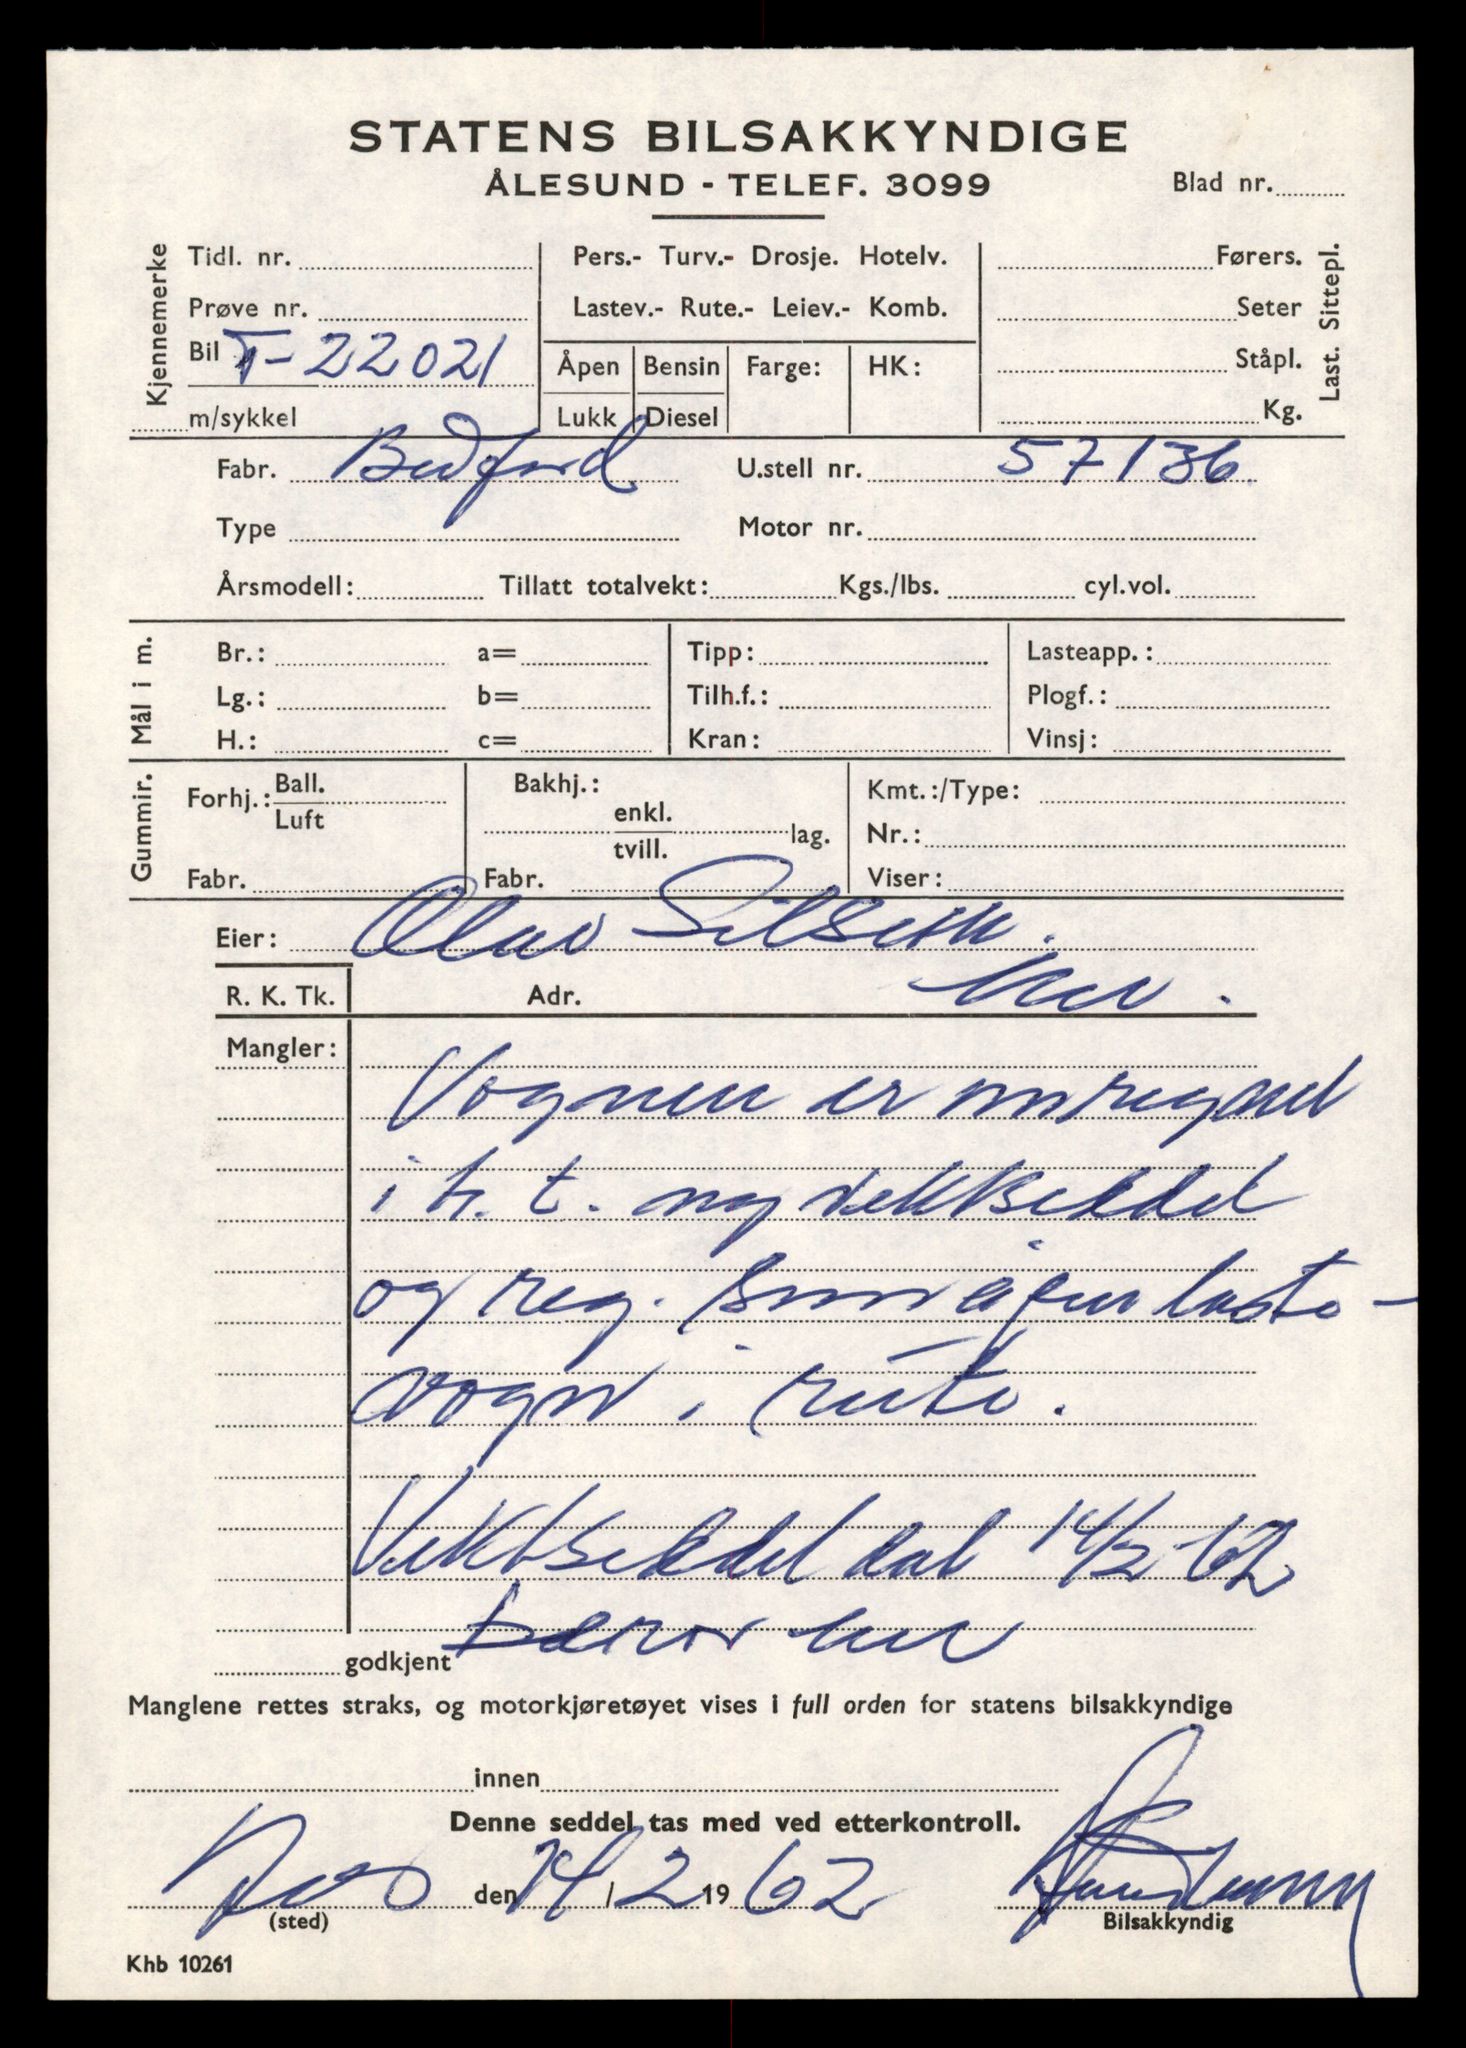 STATENS BILSAKKYNDIGE
ÅLESUND - TELEF. 3099
Blad nr.
Kjennemerke
Tidl. nr.
Prøve nr.
Bil T-22021
m/sykkel
Pers.- Turv.- Drosje. Hotelv.
Lastev.- Rute.- Leiev.- Komb.
Åpen
Lukk
Bensin
Diesel
Farge:
HK:
Førers.
Seter
Ståpl.
Kg.
Last. Sittepl.
Fabr. Bedford U.stell nr. 57136
Type Motor nr.
Årsmodell: Tillatt totalvekt: Kgs./lbs. cyl.vol.
Mål i m.
Br.: a= Tipp: Lasteapp.:
Lg.: b= Tilh.f.: Plogf.:
H.: c= Kran: Vinsj:
Gummir.
Forhj.: Ball.
Luft
Fabr.
Bakhj.:
enkl.
tvill. lag.
Fabr.
Kmt.:/Type:
Nr.:
Viser:
Eier: Olav Silseth.
R. K. Tk. Adr. her.
Mangler:
Vognen er omregnet
i h. t. ny vektseddel
og reg. som åpen laste-
vogn i rute.
Vektseddel dat 14/2-62
godkjent
Manglene rettes straks, og motorkjøretøyet vises i full orden for statens bilsakkyndige
innen
Denne seddel tas med ved etterkontroll.
den 14/2 1962
(sted) Bilsakkyndig
Khb 10261